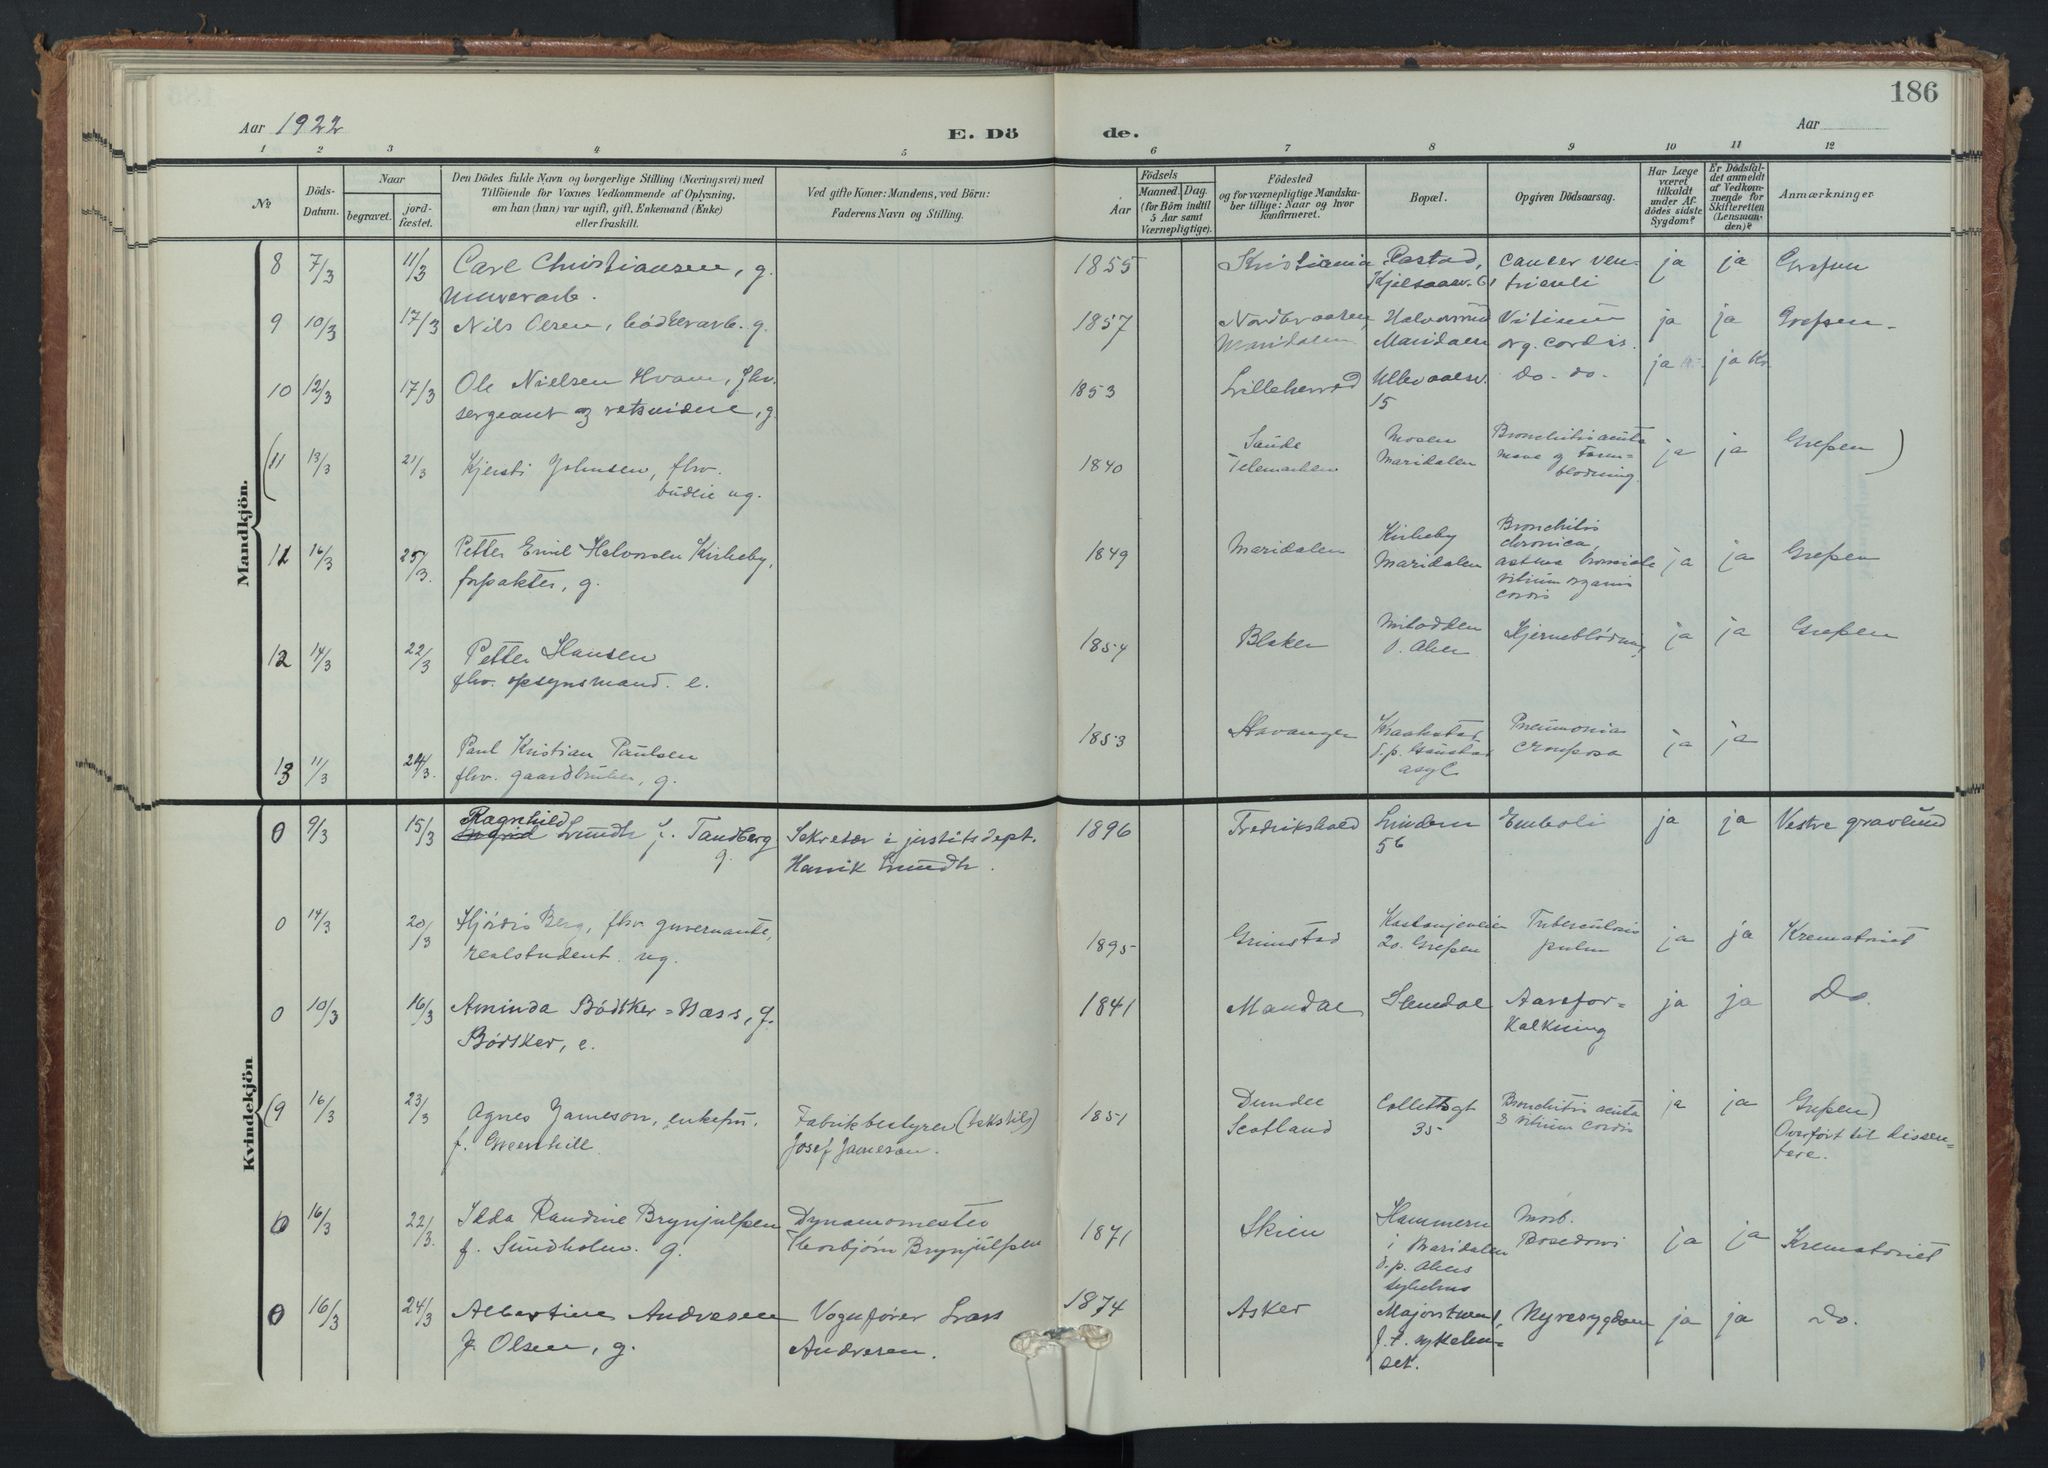 186
Aar 1922
E. Dö
de.
Aar
1 2 3 4 5 6 7 8 9 10 11 12
№
Döds-
Datum.
Naar
begravet.
jord-
fæstet.
Den Dödes fulde Navn og borgerlige Stilling (Næringsvei) med
Tilföiende for Voxnes Vedkommende af Oplysning,
om han (hun) var ugift, gift, Enkemand (Enke)
eller fraskilt.
Ved gifte Koner: Mandens, ved Börn:
Faderens Navn og Stilling.
Födsels
Aar
Maaned. Dag.
(for Börn indtil
5 Aar samt
Værnepligtige).
Födested
og for værnepligtige Mandska-
ber tillige: Naar og hvor
konfirmeret.
Bopæl.
Opgiven Dödsaarsag.
Har Læge
været
tilkaldt
under Af-
dödes sidste
Sygdom?
Er Dödsfal-
det anmeldt
af Vedkom-
mende for
Skifteretten
(Lensman-
den)?
Anmærkninger.
Mandkjön.
8 7/3 11/3 Carl Christiansen, g. 1855 Kristiania cancer ven- ja ja Grefsen
murerarb. Kjelsaasv. 61 triculi
9 10/3 17/3 Nils Olsen, bødkerarb. g. 1857 Nordbraaten Halvorsrud Vitium ja ja Grefsen
Maridalen Maridalen org. cordis.
10 12/3 17/3 Ole Nielsen Hvam, fhv. 1853 Lilleherred Ullevaalsv. do. do. ja ja
sergeant og retsvidne, g. 15
(11 13/3 21/3 Kjersti Johnsen, fhv. 1840 Saude Mosen Bronchitis acuta ja ja Grefsen)
budeie ug. Telemarken Maridalen mave og Tarm-
blødning
11 16/3 25/3. Petter Emil Halvorsen Kirkeby, 1849 Maridalen Kirkeby Bronchitis ja ja Grefsen
forpakter, g. Maridalen chronica,
astma bronciale
vitium organis
cordis
12 14/3 22/3 Petter Hansen 1854 Blaker Hjerneblødning ja ja Grefsen
fhv. opsynsmand. e. V. Aker
13 11/3 24/3. Paul Kristian Paulsen 1853 Stavanger Kraakstad Pneumonia ja ja
fhv. gaardbruker, g. d.p. Gaustad crouposa
asyl
Kvindekjön
0 9/3 15/3 Ragnhild
Ingrid Lundh f. Tandberg Sekretær i justitsdept. 1896 Fredrikshald Lindern Emboli ja ja Vestre gravlund
g. Henrik Lundh. 56
0 14/3 20/3 Hjørdis Berg, fhv. guvernante, 1895 Grimstad Kastanjeveien Tuberculosis ja ja Krematoriet
realstudent. ug. 20. Grefsen pulm
0 10/3 16/3 Aminda Bødtker=Næss, f. 1841 Mandal Slemdal Aarefor- ja ja Do.
Bødtker, e. kalkning
(9 16/3 23/3 Agnes Jameson, enkefru. Fabrikbestyrer (tekstil) 1851 Dundee Collettsgt Bronchitis acuta ja ja Grefsen)
f. Greenhill Josef Jameson. Scotland 35 & vitium cordis Overført til dissen-
tere.
0 16/3 22/3. Ilda Randine Brynjulfsen Dynamomester 1871 Skien Hammeren Morb. ja ja Krematoriet
f. Sundholm. g. Thorbjørn Brynjulfsen i Maridalen Basedowi
d.p. Akers
sykehus
0 16/3 24/3 Albertine Andresen Vognfører Lars 1874 Asker Majorstuen, Nyresygdom ja ja Do.
f. Olsen, g. Andresen.